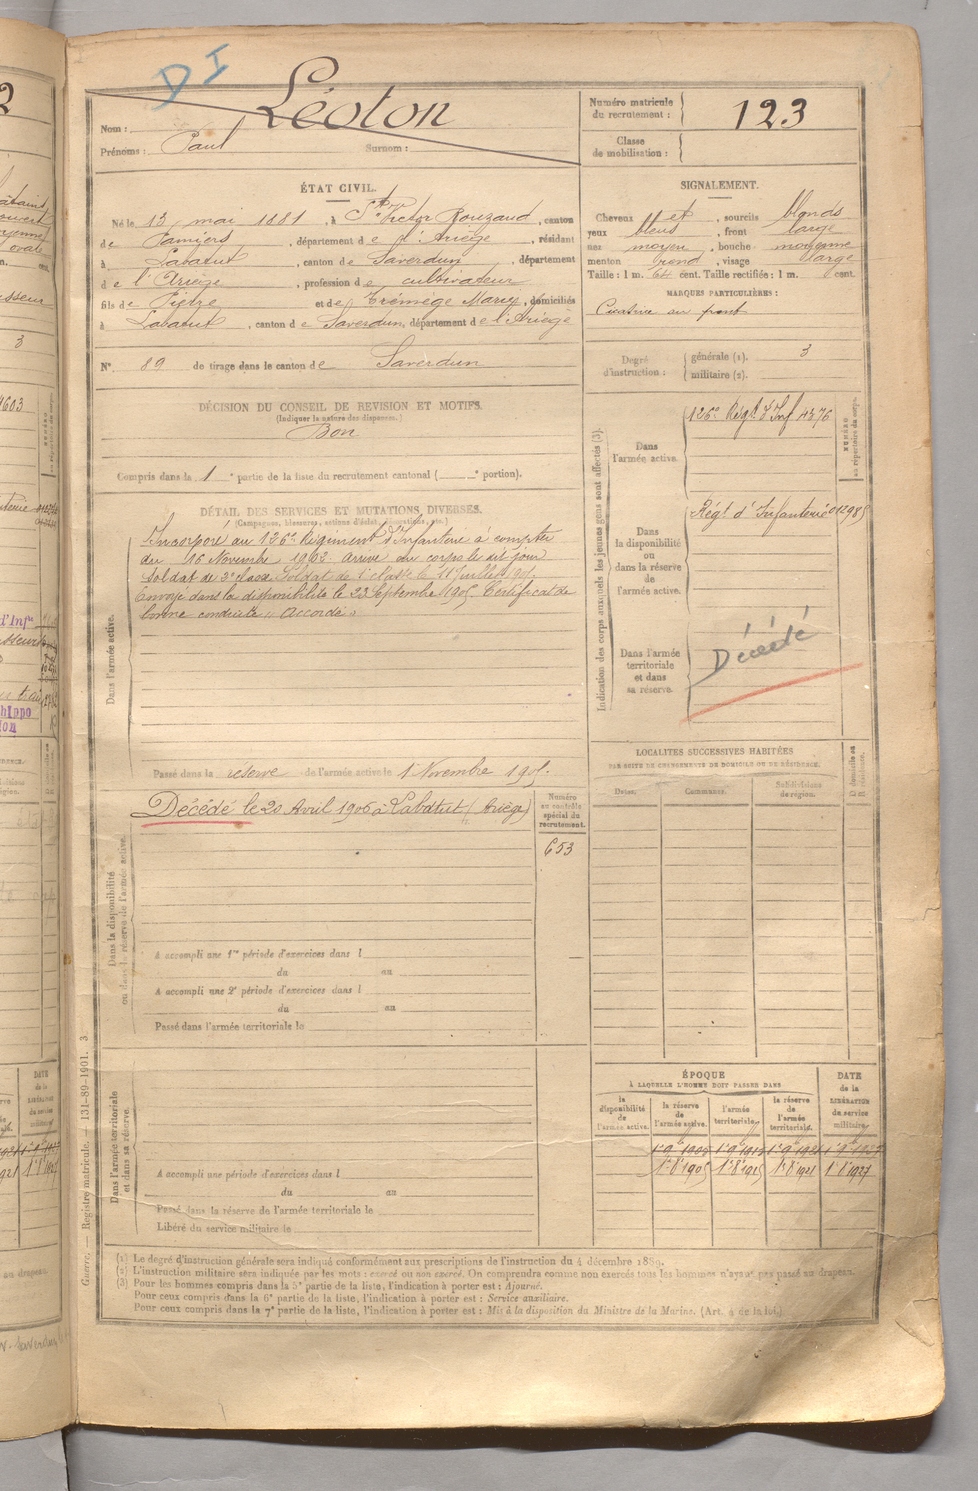 D I
Léoton
Nom :
Prénoms : Paul Surnom :
Numéro matricule du recrutement : 123
Classe de mobilisation :
ÉTAT CIVIL.
Né le 13 mai 1881, à St Victor Rouzaud, canton
de Pamiers, département de l'Ariège, résidant
à Labatut, canton de Saverdun, département
de l'Ariège, profession de cultivateur
fils de Pierre et de Trémège Mary, domiciliés
à Labatut, canton de Saverdun, département de l'Ariège
N° 89 de tirage dans le canton de Saverdun
SIGNALEMENT.
Cheveux et, sourcils blonds
yeux bleus, front large
nez moyen, bouche moyenne
menton rond, visage large
Taille : 1 m. 64 cent. Taille rectifiée : 1 m. cent.
MARQUES PARTICULIÈRES :
Cicatrice au front
Degré d'instruction : générale (1). 3
militaire (2).
DÉCISION DU CONSEIL DE REVISION ET MOTIFS.
(Indiquer la nature des dispenses.)
Bon
Compris dans la 1e partie de la liste du recrutement cantonal ( e portion).
DÉTAIL DES SERVICES ET MUTATIONS DIVERSES.
(Campagnes, blessures, actions d'éclat, décorations, etc.)
Dans l'armée active.
Incorporé au 126e Régiment d'Infanterie à compter
du 16 Novembre 1902 arrivé au corps le dit jour
Soldat de 2e classe Soldat de 1e classe le 11 Juillet 190
Envoyé dans la disponibilité le 23 Septembre 1905 Certificat de
bonne conduite "Accordé"
Passé dans la réserve de l'armée active le 1 Novembre 1905.
Indication des corps auxquels les jeunes gens sont affectés (3).
NUMÉRO au répertoire du corps.
Dans l'armée active.
126e Régt d'Inf 4576
Dans la disponibilité ou dans la réserve de l'armée active.
Régt d'Infanterie 01298
Dans l'armée territoriale et dans sa réserve.
Décédé
Dans la disponibilité ou dans la réserve de l'armée active.
Décédé le 20 Avril 1906 à Labatut (Ariège)
Numéro au contrôle spécial du recrutement.
653
A accompli une 1re période d'exercices dans l
du au
A accompli une 2e période d'exercices dans l
du au
Passé dans l'armée territoriale le
LOCALITÉS SUCCESSIVES HABITÉES
PAR SUITE DE CHANGEMENTS DE DOMICILE OU DE RÉSIDENCE.
Dates. Communes. Subdivisions de région. D domicile ou R résidence.
Dans l'armée territoriale et dans sa réserve.
A accompli une période d'exercices dans l
du au
Passé dans la réserve de l'armée territoriale le
Libéré du service militaire le
ÉPOQUE
À LAQUELLE L'HOMME DOIT PASSER DANS
DATE de la LIBÉRATION du service militaire.
la disponibilité de l'armée active. la réserve de l'armée active. l'armée territoriale. la réserve de l'armée territoriale.
1er 9bre 1905 1er 9 1915 1er 9 1921 1er 9 1927
1er 8 1905 1er 8 1915 1er 8 1921 1er 8 1927
(1) Le degré d'instruction générale sera indiqué conformément aux prescriptions de l'instruction du 4 décembre 1889.
(2) L'instruction militaire sera indiquée par les mots : exercé ou non exercé. On comprendra comme non exercés tous les hommes n'ayant pas passé au drapeau.
(3) Pour les hommes compris dans la 5e partie de la liste, l'indication à porter est : Ajourné.
Pour ceux compris dans la 6e partie de la liste, l'indication à porter est : Service auxiliaire.
Pour ceux compris dans la 7e partie de la liste, l'indication à porter est : Mis à la disposition du Ministre de la Marine. (Art. 9 de la loi.)
Guerre. — Registre matricule. — 131-89-1901. 3.